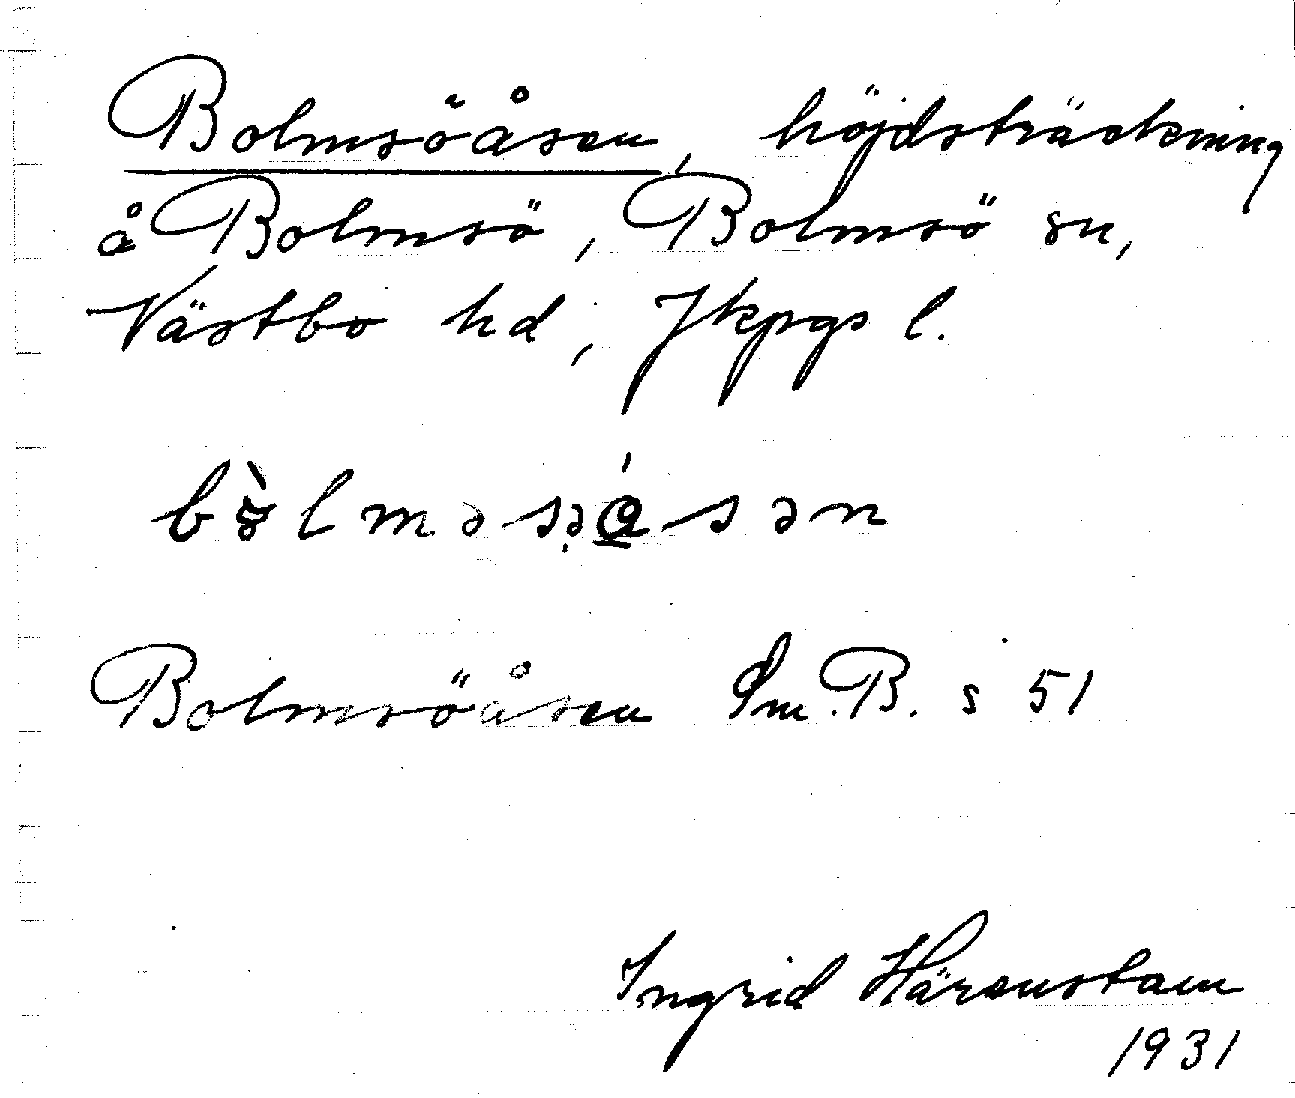 Bolmsöåsen, höjdsträckning
å Bolmsö, Bolmsö sn,
Västbo hd, Jkpgs l.
Bolmsöåsen Sm. B. s 51
Ingrid Härenstam
1931